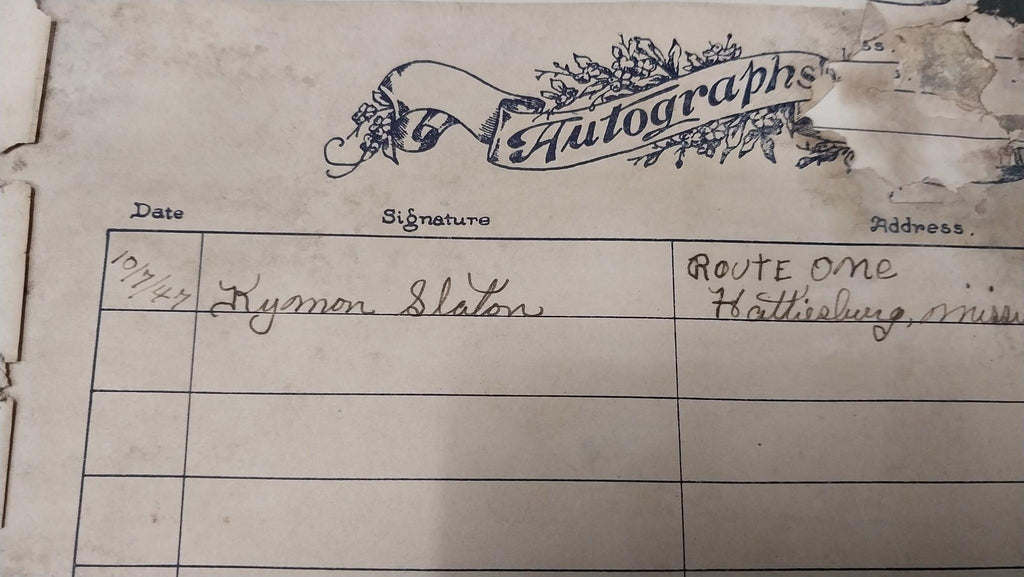 ss.
Autographs
Date Signature Address.
10/7/47 Kymon Slaton ROUTE ONE
Hattiesburg, missi